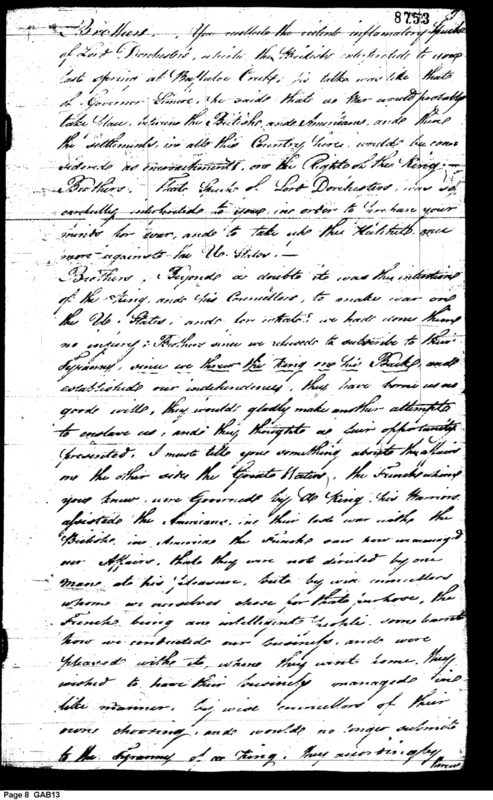 8753
Brothers. You recollect the violent inflamatory Speech
of Lord Dorchester's, which the British interpreted to you
last Spring at Buffaloe Creek, his talk was like that
of Governor Simcoe, he said that a War would probably
take place, between the British and Americans, and then
the settlements in all this Country here, would be con
sidered as encroachments, on the Rights of the King. —
Brothers. that Speech of Lord Dorchesters, was so
carefully interpreted to you, in order to prepare your
minds for war, and to take up the Hatchet once
more against the U. States. —
Brothers. Beyond a doubt it was the intention
of the King, and his Councillors, to make war on
the U. States, and for what? we had done them
no injury; Brothers since we refused to subscribe to their
Tyranny, since we threw the King on his Back, and
established our independence, they have borne us no
good will, they would gladly make another attempt
to enslave us, and they thought a fair opportunity
presented. I must tell you something about the affairs
on the other side the Great Waters, the French whom
you know, were Governed by a King, his Warriors
assisted the Americans in their last war with the
British, in America the French saw how we managed
our Affairs, that they were not directed by one
Man at his pleasure, but by wise councellors
whom we ourselves chose for that purpose, the
French being an intelligent people, soon learnt
how we conducted our business, and were
pleased with it, when they went home, they
wished to have their business managed in
like manner, by wise councellors of their
own choosing, and would no longer submit
to the Tyranny of a King, they accordingly
Page 8 GAB13